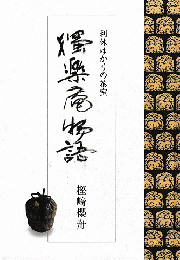 利休ゆかりの茶室
獨楽庵物語
樫崎櫻舟